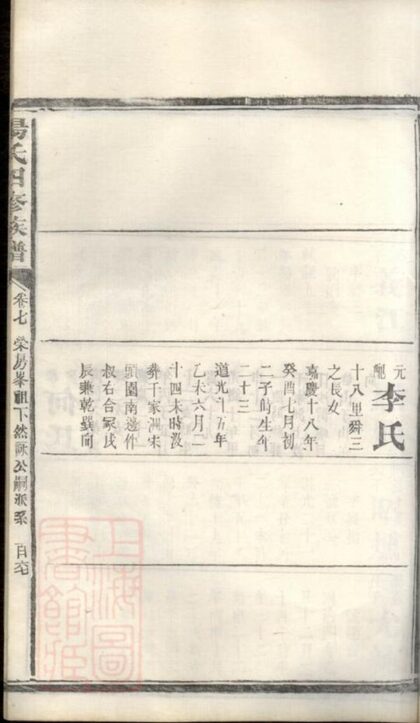 元配李氏
十八里舜三
之長女
嘉慶十八年
癸酉七月初
二子時生年
二十三
道光十五年
乙未六月二
十四未時沒
葬于家洲宋
頭園南邊作
叔右合冢戌
辰兼乾巽向
楊氏四修族譜
卷七
榮易峯祖下然詠公嗣派系
上海圖書館藏